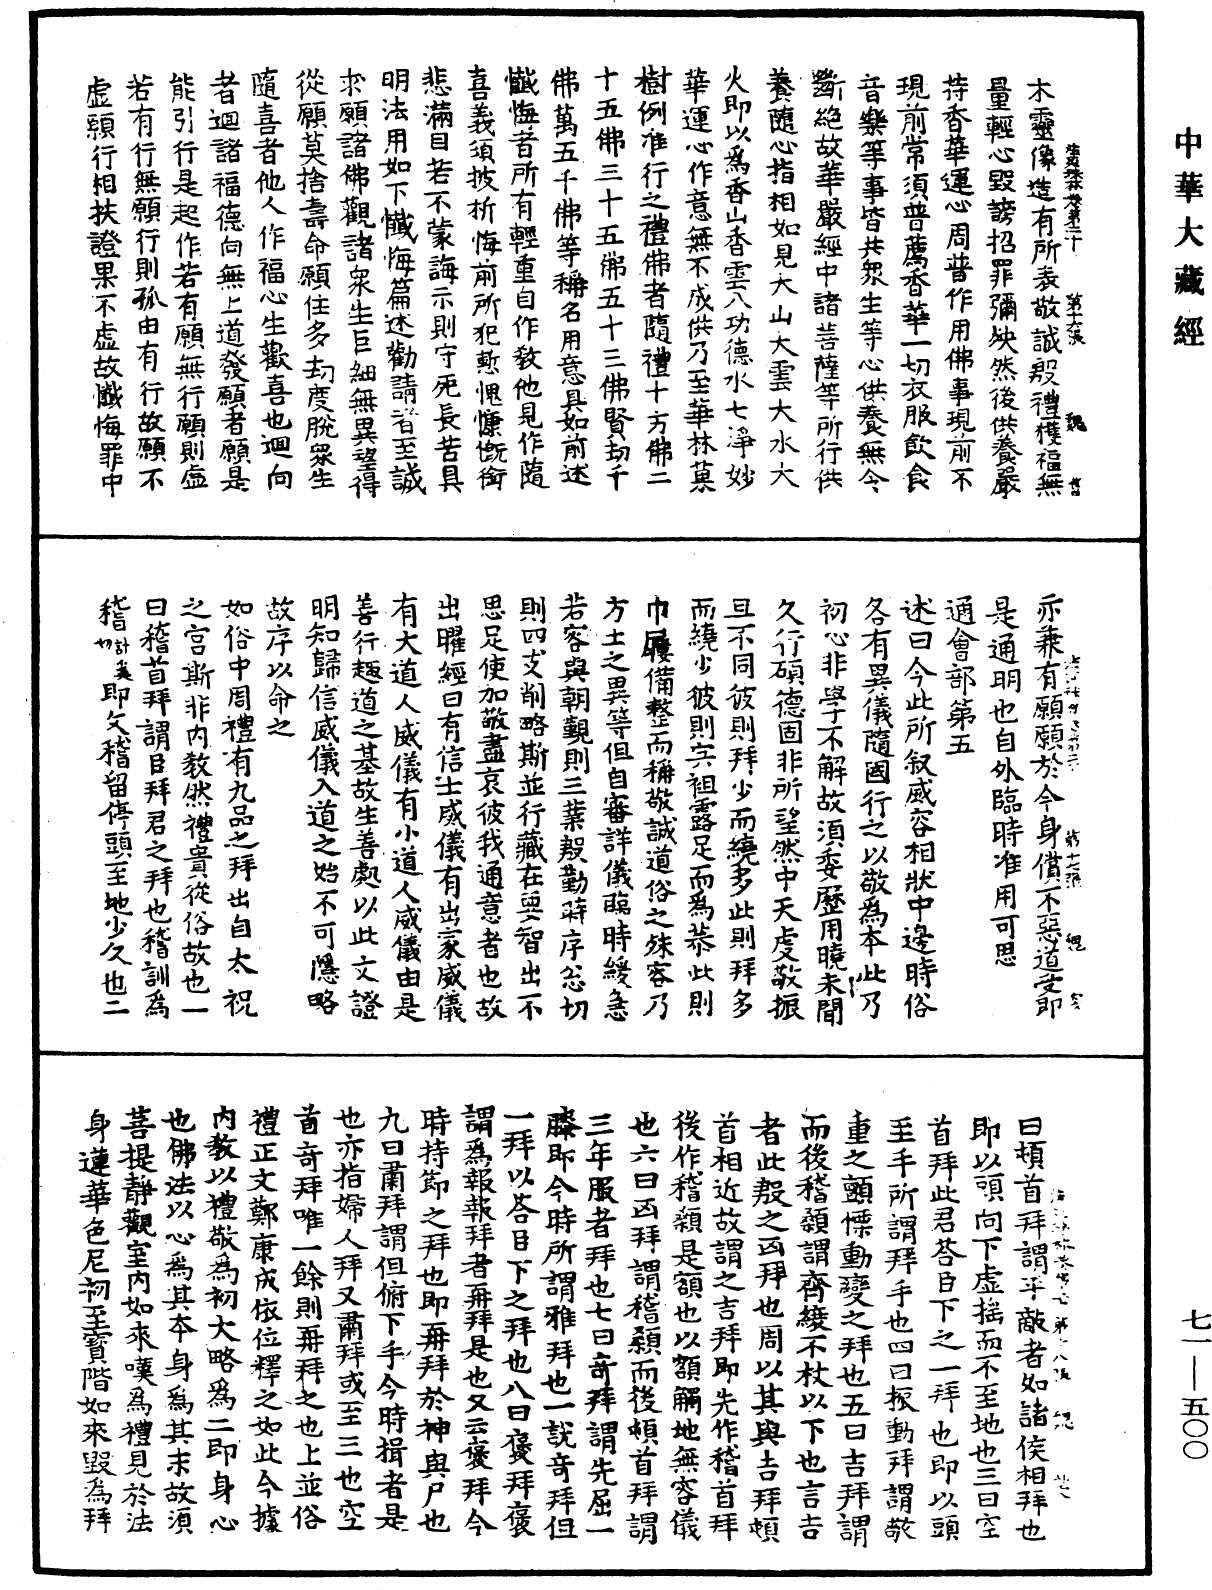 中華大藏經
木靈像造有所表敬誠殷禮獲福無
量輕心毀謗招罪彌殃然後供養嚴
持香華運心周普作用佛事現前不
現前常須普薦香華一切衣服飲食
音樂等事皆共衆生等心供養無令
斷絕故華嚴經中諸菩薩等所行供
養隨心指相如見大山大雲大水大
火即以爲香山香雲八功德水七淨妙
華運心作意無不成供乃至華林菓
樹例准行之禮佛者隨禮十方佛二
十五佛三十五佛五十三佛賢劫千
佛萬五千佛等稱名用意具如前述
懺悔者所有輕重自作敎他見作隨
喜義須披析悔前所犯慙愧慷慨銜
悲滿目若不蒙誨示則守死長苦具
明法用如下懺悔篇述勸請者至誠
求願諸佛觀諸衆生巨細無異望得
從願莫捨壽命願住多劫度脫衆生
隨喜者他人作福心生歡喜也迴向
者迴諸福德向無上道發願者願是
能引行是起作若有願無行願則虛
若有行無願行則孤由有行故願不
虛願行相扶證果不虛故懺悔罪中
亦兼有願願於今身償不惡道受即
是通明也自外臨時准用可思
通會部第五
述曰今此所叙威容相狀中邊時俗
各有異儀隨國行之以敬爲本此乃
初心非學不解故須委歷用曉未聞
久行碩德固非所望然中天虔敬振
旦不同彼則拜少而繞多此則拜多
而繞少彼則肉袒露足而爲恭此則
巾屨備整而稱敬誠道俗之殊容乃
方土之異等但自審詳儀臨時緩急
若客與朝覲則三業殷勤時序忩切
則四支削略斯並行藏在要智出不
思足使加敬盡哀彼我通意者也故
出曜經曰有信士威儀有出家威儀
有大道人威儀有小道人威儀由是
善行趣道之基故生善處以此文證
明知歸信威儀入道之始不可隱略
故序以命之
如俗中周禮有九品之拜出自太祝
之官斯非內敎然禮貴從俗故也一
曰稽首拜謂臣拜君之拜也稽訓爲
稽計奚切即久稽留停頭至地少久也二
曰頓首拜謂平敵者如諸侯相拜也
即以頭向下虛搖而不至地也三曰空
首拜此君荅臣下之一拜也即以頭
至手所謂拜手也四曰振動拜謂敬
重之顫慄動變之拜也五曰吉拜謂
而後稽顙謂齊縗不杖以下也言吉
者此殷之凶拜也周以其與吉拜頓
首相近故謂之吉拜即先作稽首拜
後作稽顙是額也以額觸地無容儀
也六曰凶拜謂稽顙而後頓首拜謂
三年服者拜也七曰奇拜謂先屈一
膝即今時所謂雅拜也一說奇拜但
一拜以荅臣下之拜也八曰襃拜襃
謂爲報報拜者再拜是也又云襃拜今
時持節之拜也即再拜於神與尸也
九曰肅拜謂但俯下手今時揖者是
也亦指婦人拜又肅拜或至三也空
首奇拜唯一餘則再拜之也上並俗
禮正文鄭康成依位釋之如此今據
內敎以禮敬爲初大略爲二即身心
也佛法以心爲其本身爲其末故須
菩提靜觀室內如來嘆爲禮見於法
身蓮華色尼初至寶階如來毀爲拜
七一—五〇〇